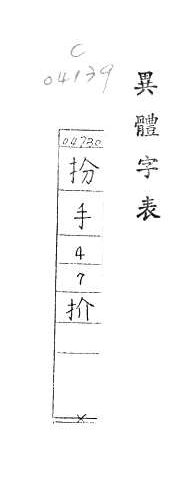 C
04139
異體字表
04730
扮
手
4
7
扴